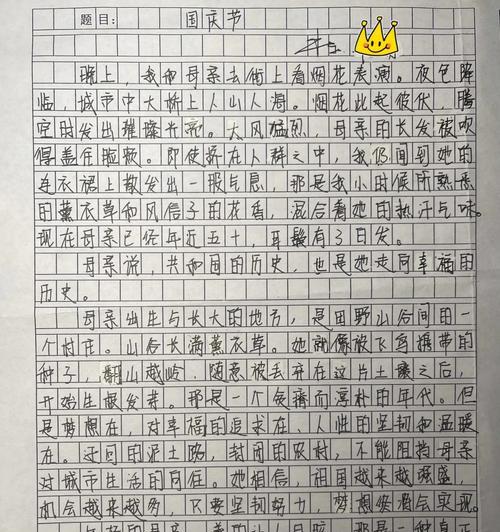 题目: 国庆节
晚上，我和母亲去街上看烟花表演。夜色降
临，城市中大桥上人山人海。烟花此起彼伏，腾
空时发出璀璨光亮。大风猛烈，母亲的长发被吹
得盖住脸颊。即使挤在人群之中，我仍闻到她的
连衣裙上散发出一股气息，那是我小时候所熟悉
的薰衣草和风信子的花香，混合着她的热汗气味。
现在母亲已经年近五十，耳鬓有了白发。
母亲说，共和国的历史，也是她走向幸福的
历史。
母亲出生与长大的地方，是田野山谷间的一
个村庄。山谷长满薰衣草。她就像被飞鸟携带的
种子，翻山越岭，随意被丢弃在这片土壤之后，
开始生根发芽。那是一个贫瘠而富朴的年代。但
是梦想在，对幸福的追求在，人性的坚韧和温暖
在。迂回的泥土路，封闭的农村，不能阻挡母亲
对城市生活的向往。她相信，祖国越来越强盛，
机会越来越多，只要坚韧努力，梦想终会实现。